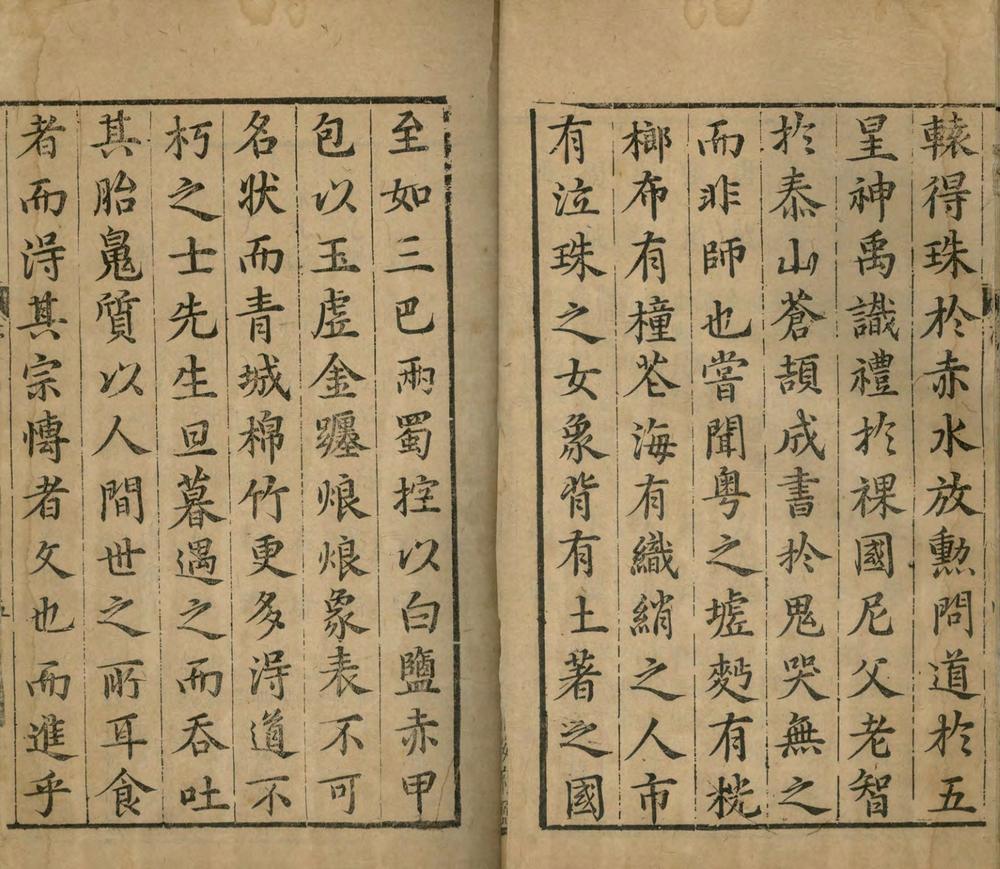 轅得珠扵赤水放勳問道扵五
星神禹識禮扵裸國尼父老智
扵泰山蒼頡成書扵鬼哭無之
而非師也嘗聞粵之墟麫有桄
榔布有橦花海有織綃之人市
有泣珠之女象背有土著之國
至如三巴兩蜀控以白鹽赤甲
包以玉虛金躔烺烺象表不可
名狀而青城棉竹更多淂道不
朽之士先生旦暮遇之而吞吐
其胎質以人間世之所耳食
者而淂其宗慱者文也而進乎